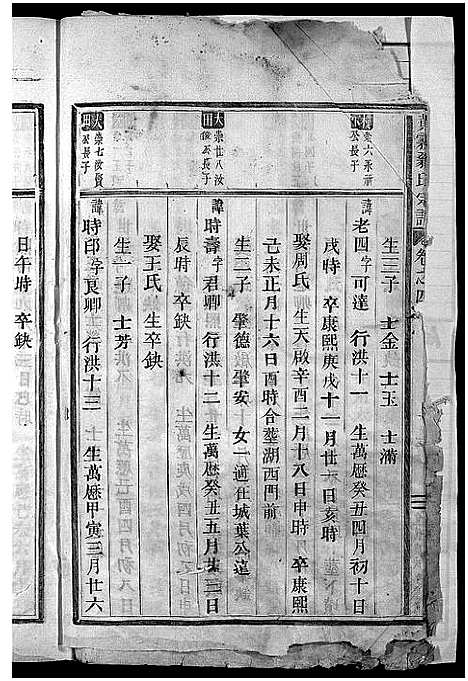 氏宗譜 卷之四
生三子 士金 士玉 士滿
公長子
諱老四字可達 行洪十一 生萬歷癸丑四月初十日
戌時 卒康熙庚戌十一月廿三日亥時
娶周氏 生天啟辛酉二月十八日申時 卒康熙
己未正月十六日酉時合葬湖西門前
生二子 肇德 肇安 女一適在城葉公遠
大田 崇廿八汝 公長子
諱時壽字君卿 行洪十二 生萬歷癸丑五月廿三日
辰時 卒缺
娶王氏 生卒缺
生一子 士芳
大田 崇七汝賢公長子
諱時印字良卿 行洪十三 生萬歷甲寅三月廿六
日午時 卒缺